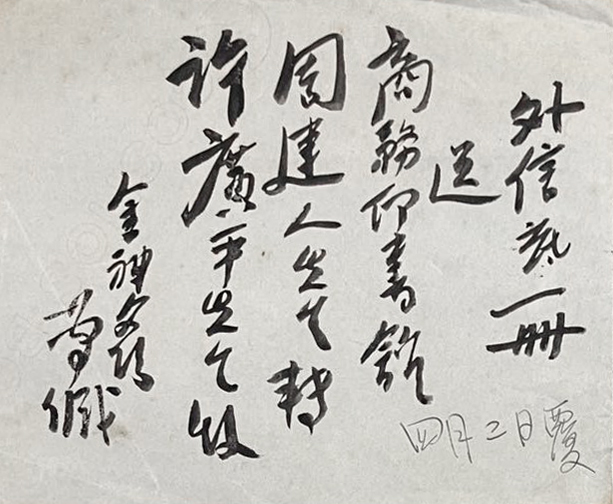 外信一冊
送
商務印書館
周建人先生轉
許廣平先生啟
金神父路
緘
四月二日覆